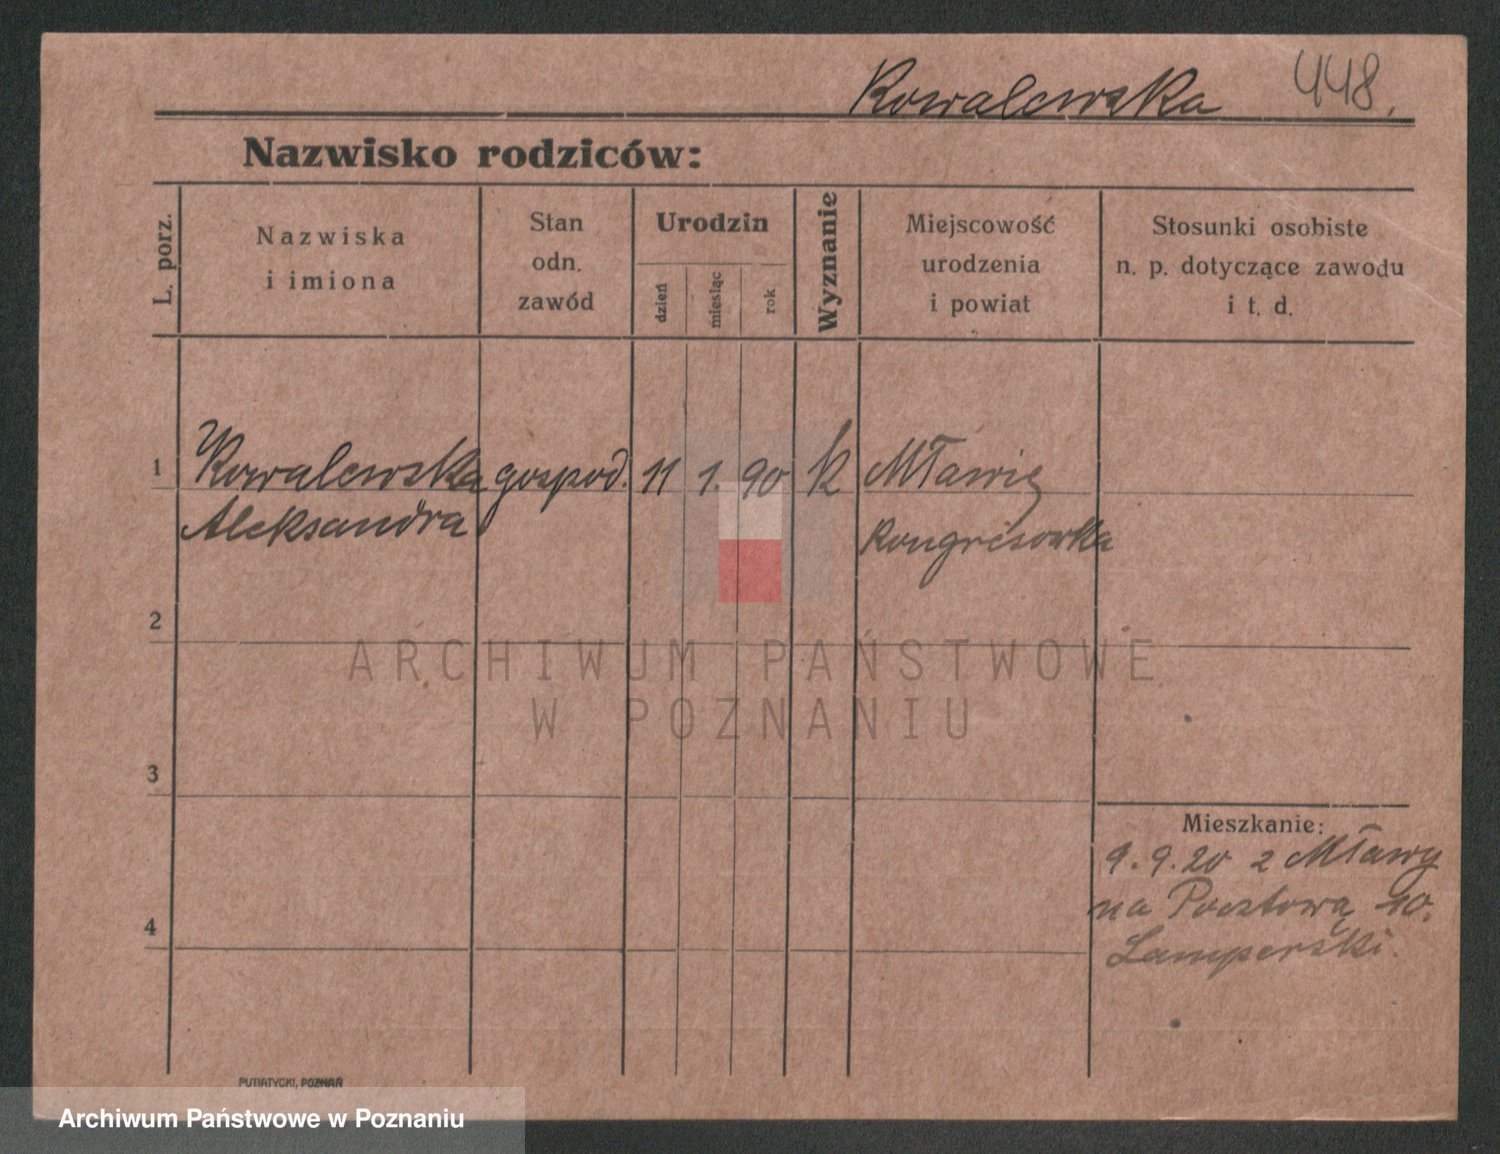 Kowalewska 448.
Nazwisko rodziców:
L. porz.
Nazwiska
i imiona
Stan
odn.
zawód
Urodzin
dzień
miesiąc
rok
Wyznanie
Miejscowość
urodzenia
i powiat
Stosunki osobiste
n. p. dotyczące zawodu
i t. d.
1 Kowalewska gospod. 11 1. 90 k Mławie
Aleksandra Kongresowka
2
ARCHIWUM PAŃSTWOWE
W POZNANIU
3
Mieszkanie:
9.9.20 z Mławy
na Pocztową 10.
Lamperski.
4
PUTIATYCKI, POZNAŃ
Archiwum Państwowe w Poznaniu